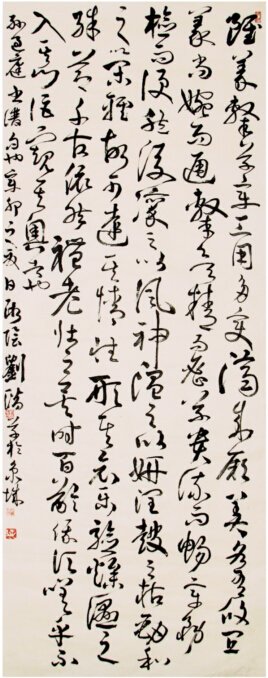 雖篆隸草章工用多變濟成厥美各有攸宜
篆尚婉而通隸欲精而密草貴流而暢章務
檢而便然後凜之以風神溫之以妍潤鼓之枯勁和
之以閑雅故可達其情性形其哀樂驗燥濕之
殊節千古依然體老壯之異時百齡俄頃嗟乎不
入其門詎窺其奧者也
孫過庭書譜句也辛卯之夏日 劉 於京城